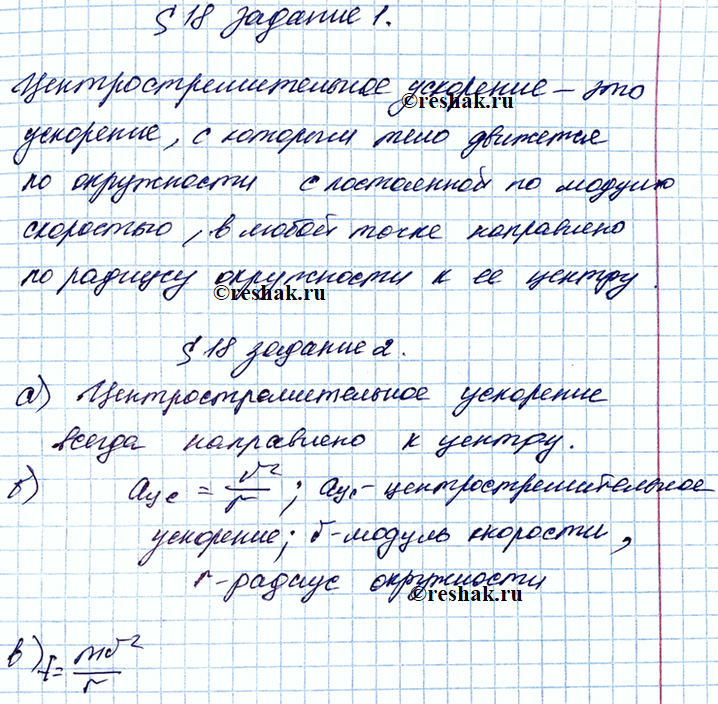 § 18 задание 1.
Центростремительное ускорение – это
©reshak.ru
ускорение, с которым тело движется
по окружности с постоянной по модулю
скоростью, в любой точке направлено
по радиусу окружности к ее центру.
©reshak.ru
§ 18 задание 2.
а) Центростремительное ускорение
всегда направлено к центру.
б) aцс = v²/r ; aцс – центростремительное
ускорение; v – модуль скорости,
r – радиус окружности
©reshak.ru
в) F = mv²/r